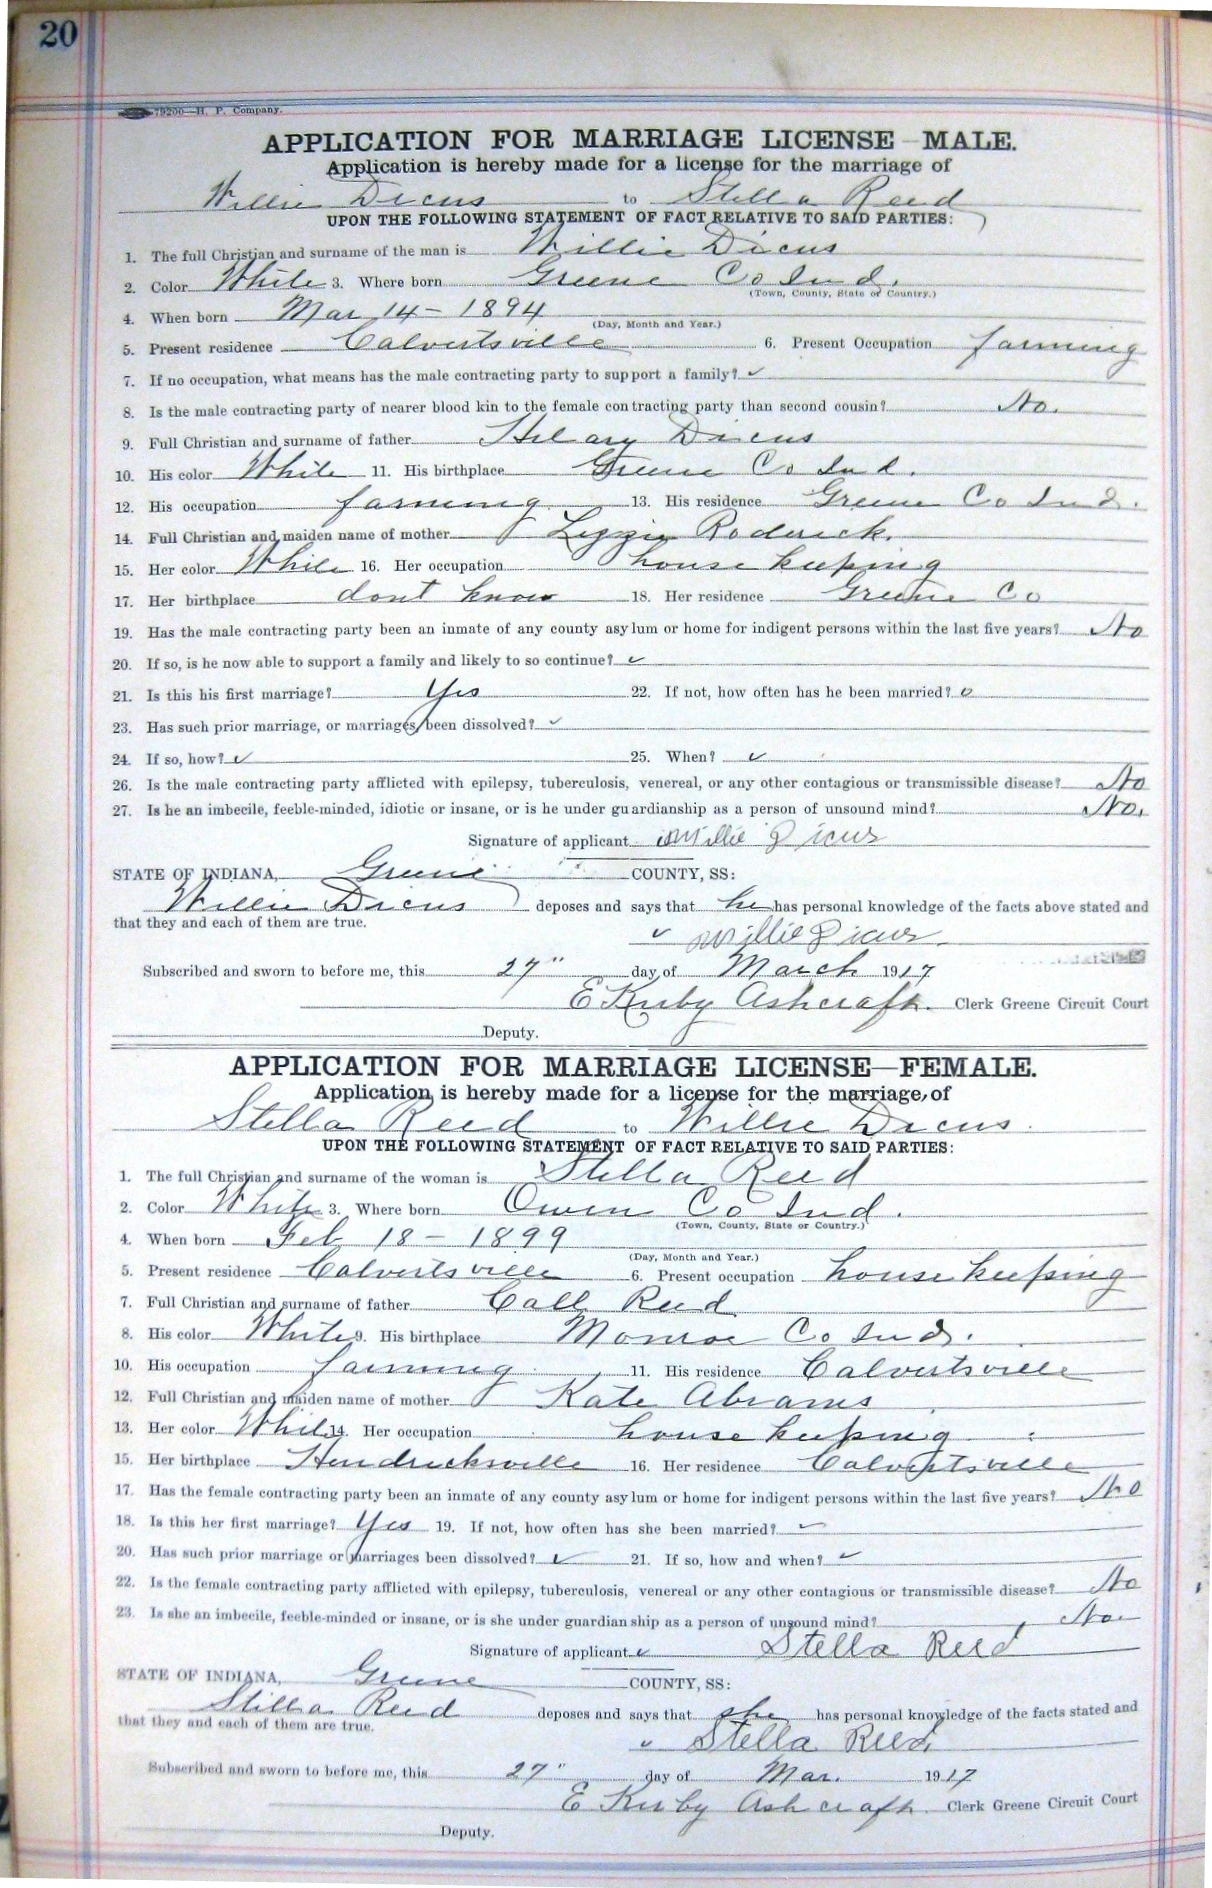 20
79200—H. P. Company.
APPLICATION FOR MARRIAGE LICENSE—MALE.
Application is hereby made for a license for the marriage of
Willie Dicus to Stella Reed
UPON THE FOLLOWING STATEMENT OF FACT RELATIVE TO SAID PARTIES:
1. The full Christian and surname of the man is Willie Dicus
2. Color White 3. Where born Greene Co Ind.
(Town, County, State or Country.)
4. When born Mar 14 - 1894
(Day, Month and Year.)
5. Present residence Calvertsville 6. Present Occupation farming
7. If no occupation, what means has the male contracting party to support a family? ✓
8. Is the male contracting party of nearer blood kin to the female contracting party than second cousin? No.
9. Full Christian and surname of father Hilary Dicus
10. His color White 11. His birthplace Greene Co Ind.
12. His occupation farming 13. His residence Greene Co Ind.
14. Full Christian and maiden name of mother Lizzie Roderick.
15. Her color White 16. Her occupation house keeping
17. Her birthplace dont know 18. Her residence Greene Co
19. Has the male contracting party been an inmate of any county asylum or home for indigent persons within the last five years? No
20. If so, is he now able to support a family and likely to so continue? ✓
21. Is this his first marriage? Yes 22. If not, how often has he been married? o
23. Has such prior marriage, or marriages, been dissolved? ✓
24. If so, how? ✓ 25. When? ✓
26. Is the male contracting party afflicted with epilepsy, tuberculosis, venereal, or any other contagious or transmissible disease? No
27. Is he an imbecile, feeble-minded, idiotic or insane, or is he under guardianship as a person of unsound mind? No.
Signature of applicant Willie Dicus
STATE OF INDIANA, Greene COUNTY, SS:
Willie Dicus deposes and says that he has personal knowledge of the facts above stated and
that they and each of them are true.
✓ Willie Dicus
Subscribed and sworn to before me, this 27" day of March 1917
E Kirby Ashcraft. Clerk Greene Circuit Court
Deputy.
APPLICATION FOR MARRIAGE LICENSE—FEMALE.
Application is hereby made for a license for the marriage of
Stella Reed to Willie Dicus.
UPON THE FOLLOWING STATEMENT OF FACT RELATIVE TO SAID PARTIES:
1. The full Christian and surname of the woman is Stella Reed
2. Color White 3. Where born Owen Co Ind.
(Town, County, State or Country.)
4. When born Feb 18 - 1899
(Day, Month and Year.)
5. Present residence Calvertsville 6. Present occupation house keeping
7. Full Christian and surname of father Call Reed
8. His color White 9. His birthplace Monroe Co Ind.
10. His occupation farming 11. His residence Calvertsville
12. Full Christian and maiden name of mother Kate Abrams
13. Her color White 14. Her occupation house keeping
15. Her birthplace Hendricksville 16. Her residence Calvertsville
17. Has the female contracting party been an inmate of any county asylum or home for indigent persons within the last five years? No
18. Is this her first marriage? Yes 19. If not, how often has she been married? ✓
20. Has such prior marriage or marriages been dissolved? ✓ 21. If so, how and when? ✓
22. Is the female contracting party afflicted with epilepsy, tuberculosis, venereal or any other contagious or transmissible disease? No
23. Is she an imbecile, feeble-minded or insane, or is she under guardianship as a person of unsound mind? No
Signature of applicant ✓ Stella Reed
STATE OF INDIANA, Greene COUNTY, SS:
Stella Reed deposes and says that she has personal knowledge of the facts stated and
that they and each of them are true.
✓ Stella Reed.
Subscribed and sworn to before me, this 27" day of Mar. 1917
E Kirby Ashcraft. Clerk Greene Circuit Court
Deputy.